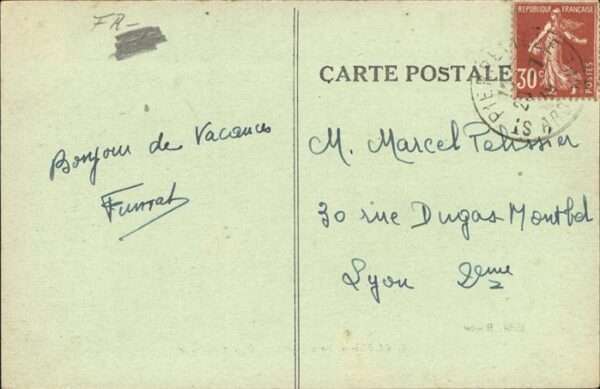 FR-
Bonjour de Vacances
CARTE POSTALE
REPUBLIQUE FRANÇAISE
30c
POSTES
M. Marcel Pelissier
30 rue Dugas Montbel
Lyon 2eme